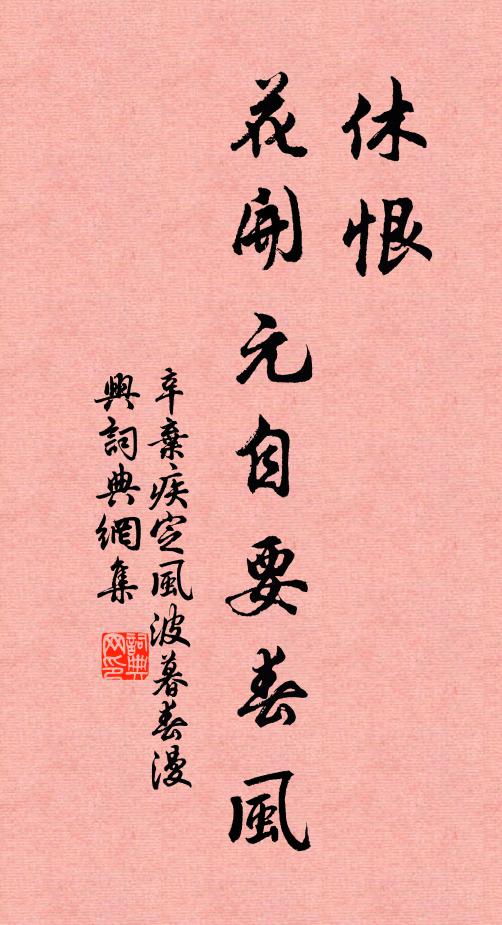 休恨
花開元自要春風
辛棄疾定風波暮春漫
興詞典網集
詞典网印